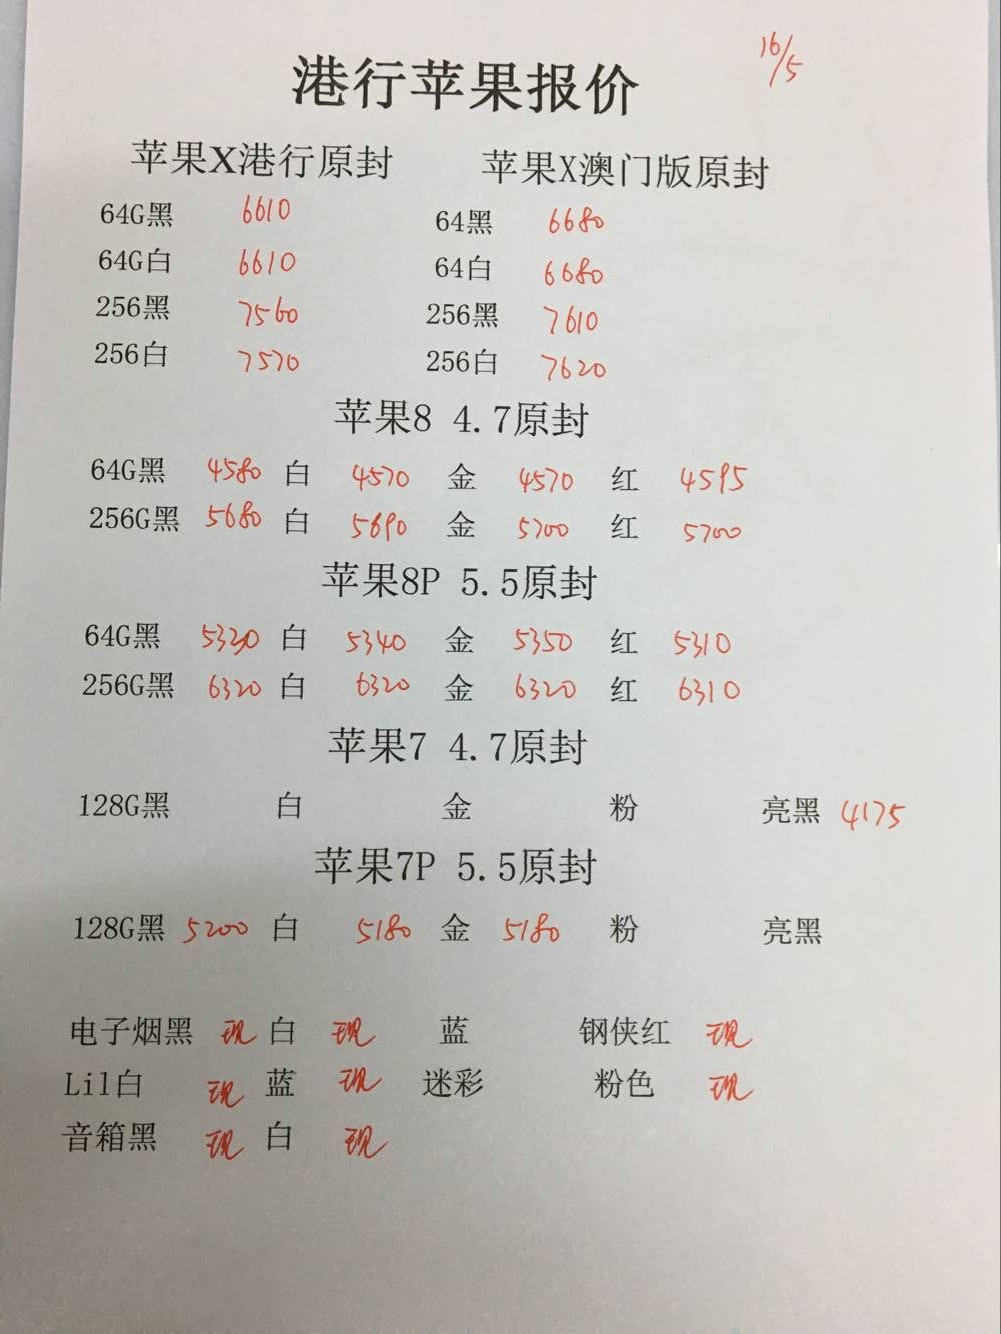 16/5
港行苹果报价
苹果X港行原封 苹果X澳门版原封
64G黑 6610 64黑 6680
64G白 6610 64白 6680
256黑 7560 256黑 7610
256白 7570 256白 7620
苹果8 4.7原封
64G黑 4580 白 4570 金 4570 红 4595
256G黑 5680 白 5690 金 5700 红 5700
苹果8P 5.5原封
64G黑 5320 白 5340 金 5350 红 5310
256G黑 6320 白 6320 金 6320 红 6310
苹果7 4.7原封
128G黑 白 金 粉 亮黑 4175
苹果7P 5.5原封
128G黑 5200 白 5180 金 5180 粉 亮黑
电子烟黑 现 白 现 蓝 钢侠红 现
Lil白 现 蓝 现 迷彩 粉色 现
音箱黑 现 白 现